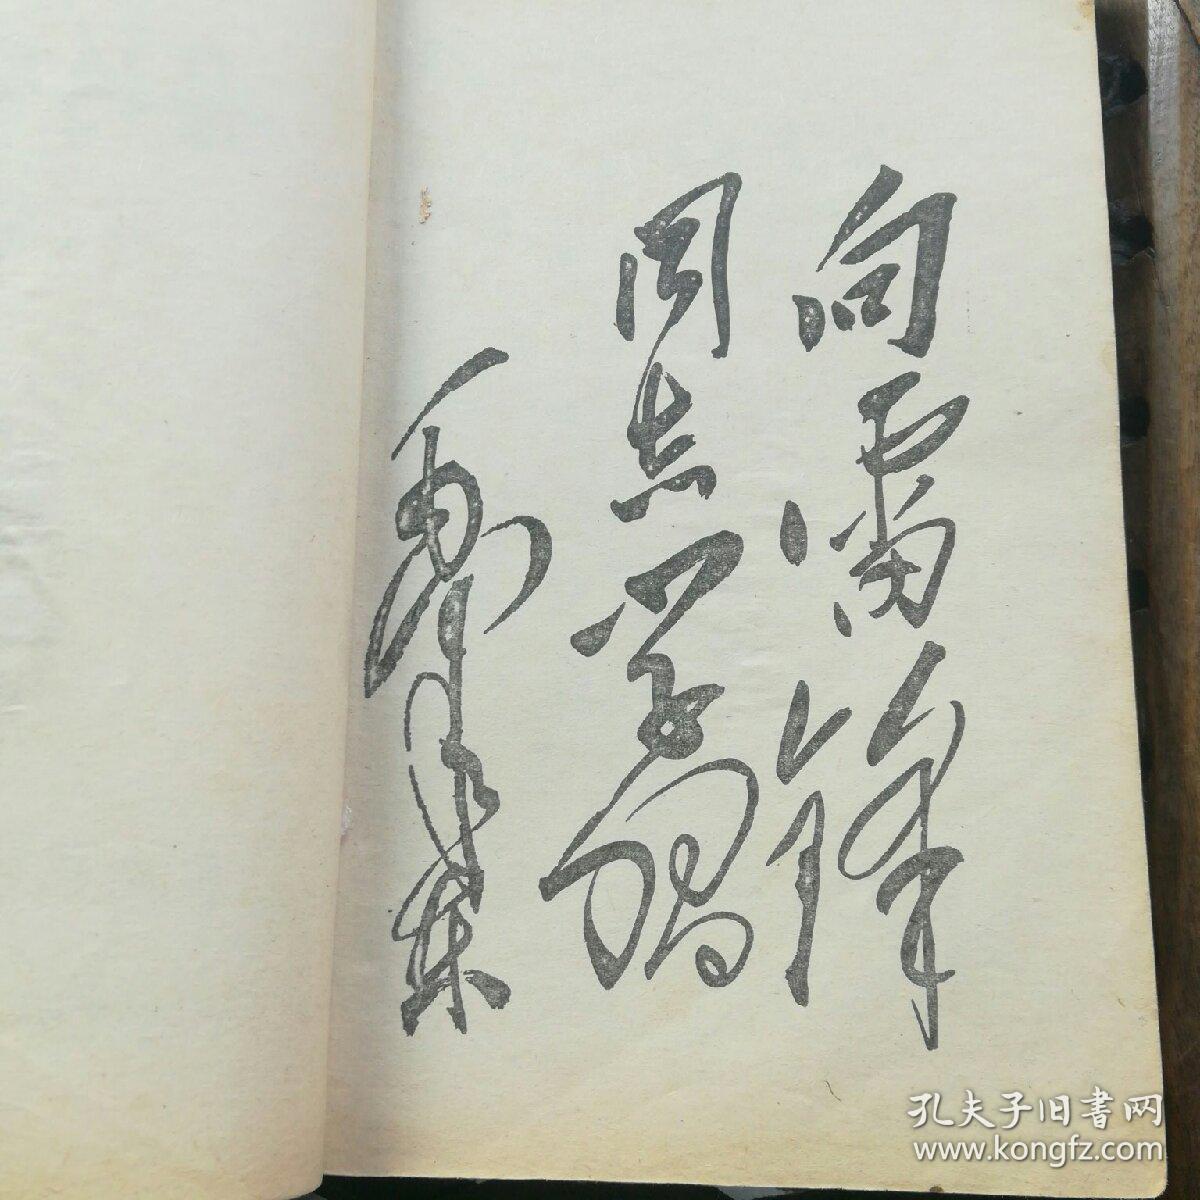 向雷锋
同志学习
毛泽东
孔夫子旧書网
www.kongfz.com